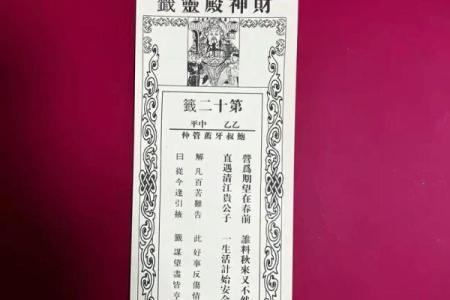 財神殿靈籤
第十二籤
乙乙 中平
鮑叔牙薦管仲
營爲期望在春前 誰料秋來又不然
直遇清江貴公子 一生活計始安全
解 凡百苦難告 此 好事反傷情
曰 從今逢引 籤 謀望盡皆亨